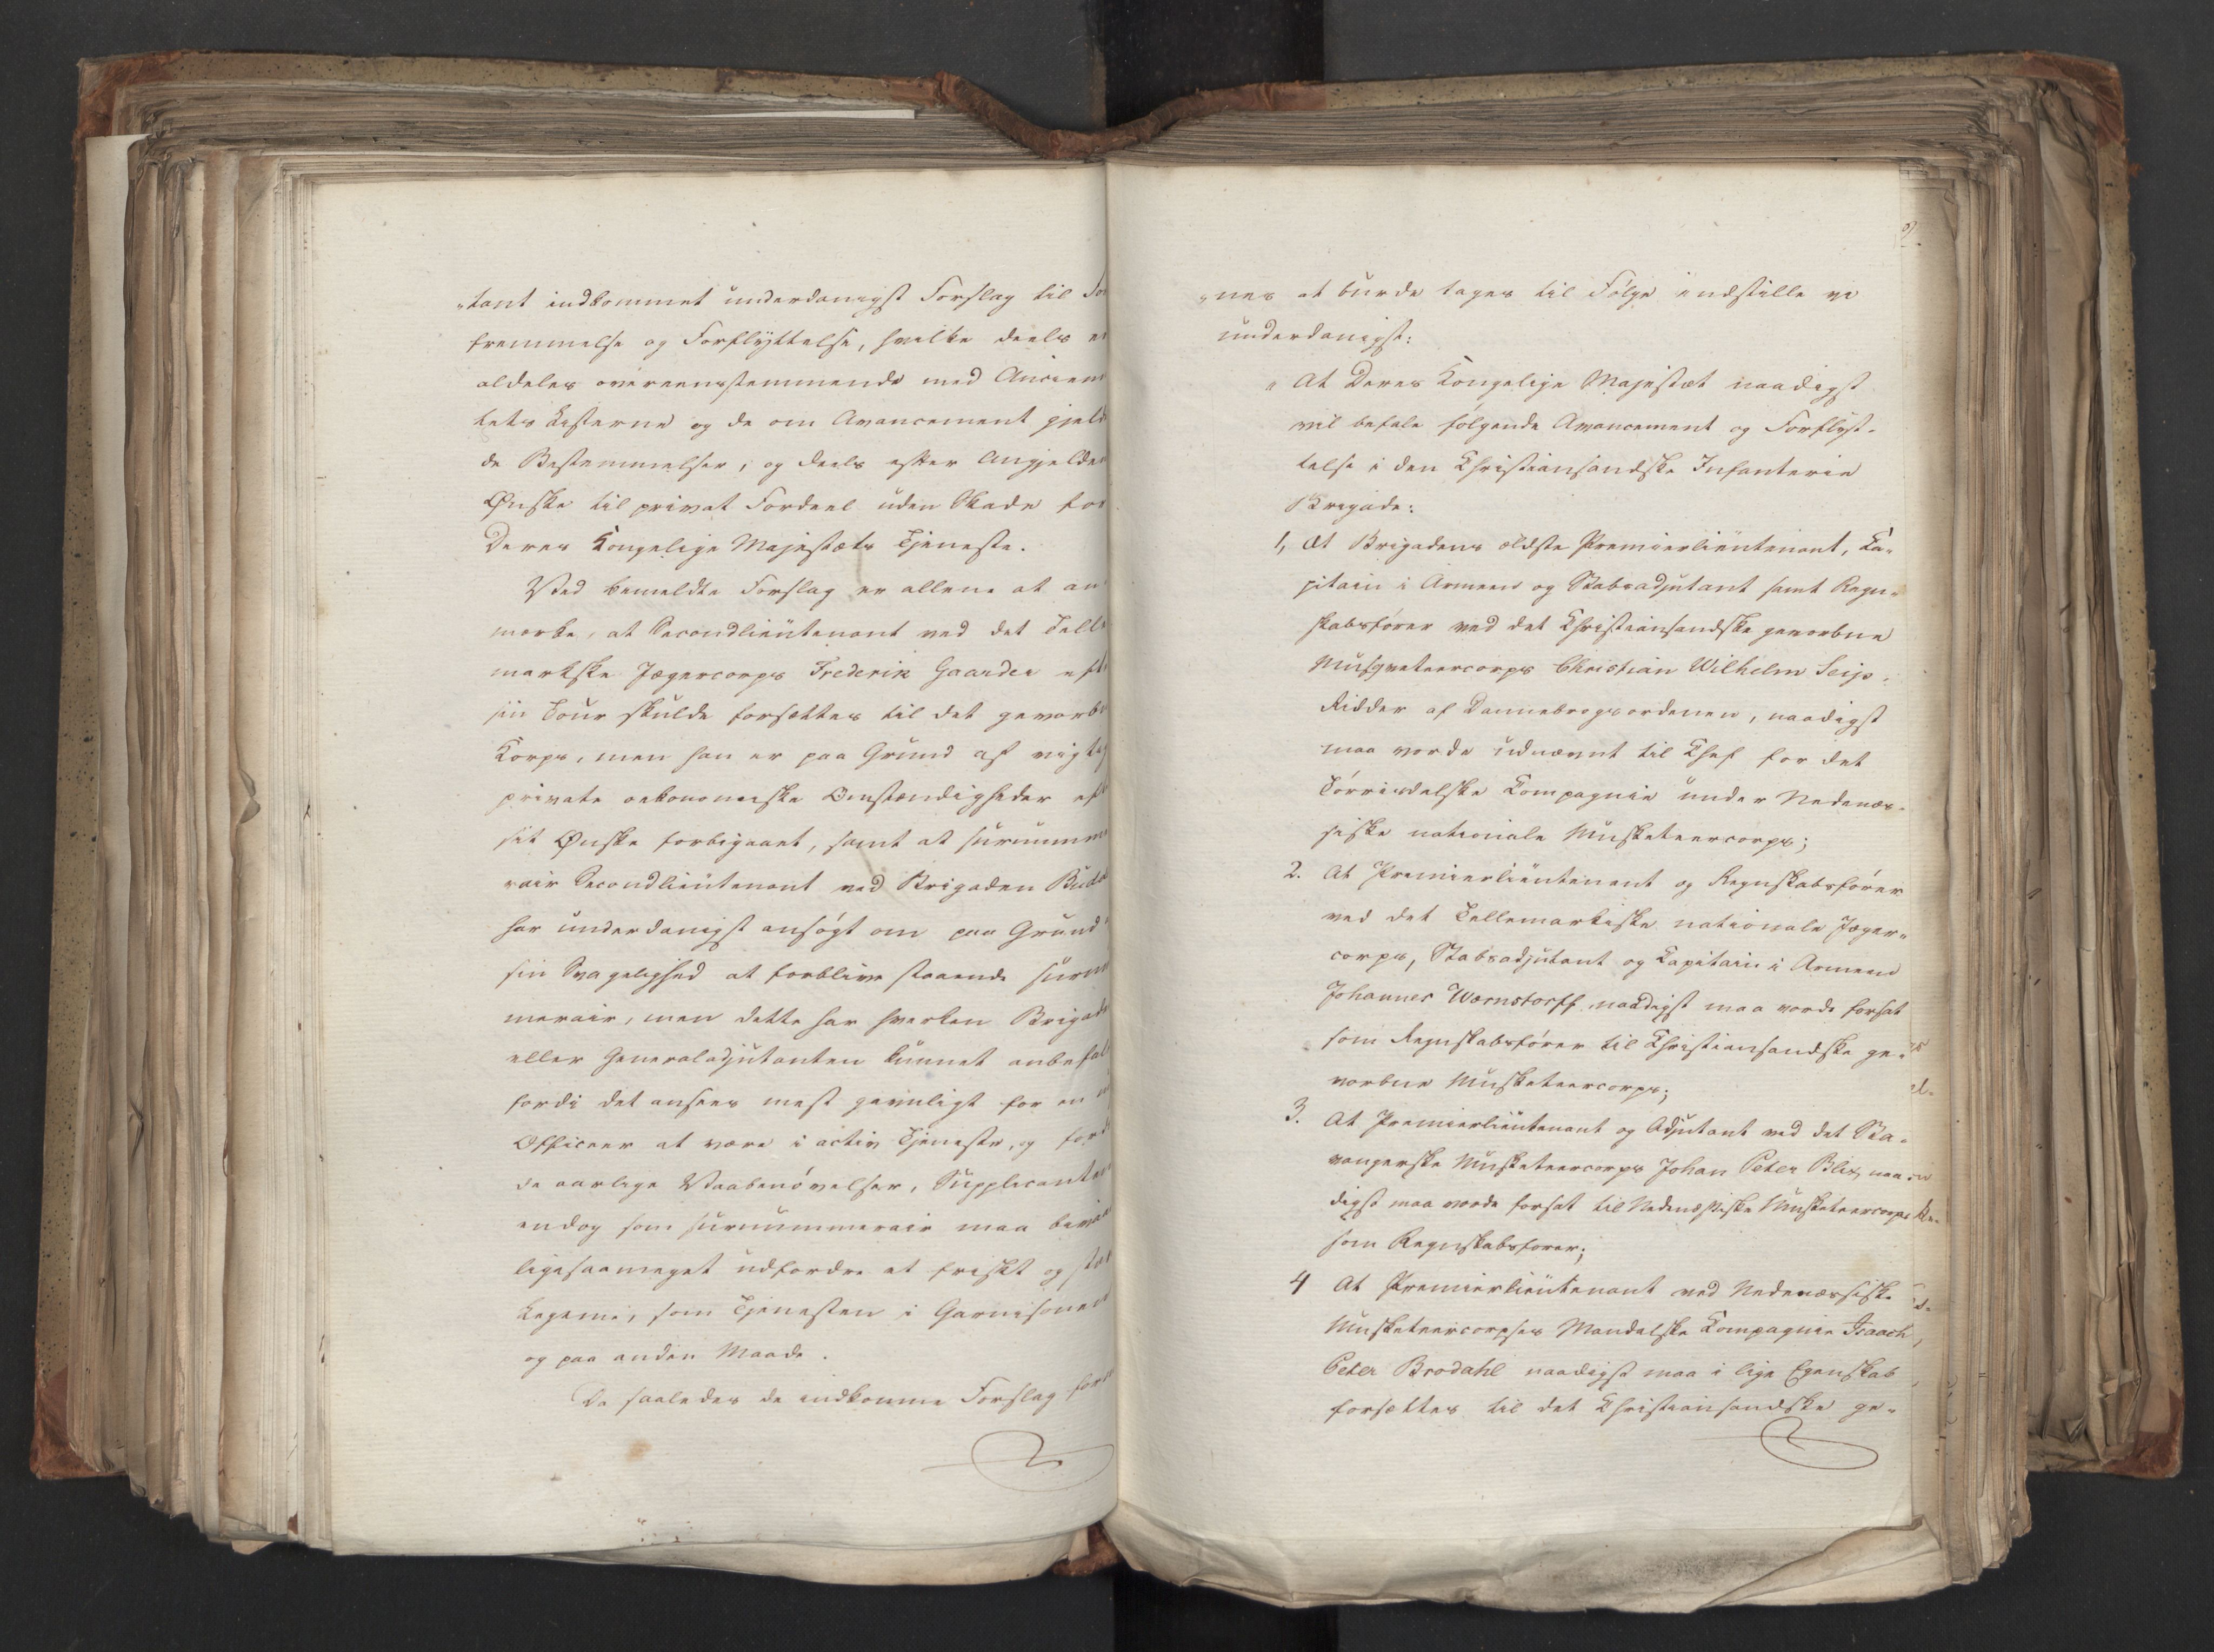 „tant indkommet underdanigst Forslag til For
fremmelse og Forflyttelse, hvilke deels er
aldeles overeensstemmende med Ancienne
tets Listerne og de om Avancement gjeld
de Bestemmelser, og deels efter Angjelden
Ønske til privat Fordeel uden Skade for
Deres Kongelige Majestæts Tjeneste.
Ved bemeldte Forslag er allene at an
mærke, at Secondlieutenant ved det Telle
markske Jægercorps Frederik Gaarder eft
sin Tour skulde forsættes til det gevorbn
Korps, men han er paa Grund af vigtig
private oekonomiske Omstændigheder eft
sit Ønske forbigaaet, samt at surnumme
rair Secondlieutenant ved Brigaden Budd
har underdanigst ansøgt om paa Grund
sin Svagelighed at forblive staaende surnu
merair, men dette har hverken Brigade
eller Generaladjutanten kunnet anbefale
fordi det ansees mest gavnligt for en
Officeer at være i activ Tjeneste, og fordi
de aarlige Vaabenøvelser, Supplicanten
endog som surnummerair maa bivaa
ligesaameget udfordre et friskt og stær
Legeme, som Tjenesten i Garnisonen
og paa anden Maade.
Da saaledes de indkomne Forslag fore
„nes at burde tages til Følge indstille vi
underdanigst:
„At Deres Kongelige Majestæt naadigst
vil befale følgende Avancement og Forflyt-
telse i den Christiansandske Infanterie
Brigade:
1, At Brigadens ældste Premierlieutenant, Ca-
pitain i Armeen og Stabsadjutant samt Regn-
skabsfører ved det Christiansandske gevorbne
Musqueteercorps Christian Wilhelm Seip,
Ridder af Dannebrogsordenen, naadigst
maa vorde udnævnt til Chef for det
Torrisdalske Compagnie under Nedenæs-
siske nationale Musketeercorps;
2. At Premierlieutenant og Regnskabsfører
ved det Tellemarkiske nationale Jæger-
corps, Stabsadjutant og Capitain i Armeen
Johannes Wærnstorff naadigst maa vorde forsat
som Regnskabsfører til Christiansandske ge-
vorbne Musketeercorps;
3. At Premierlieutenant og Adjutant ved det Sta-
vangerske Musketeercorps Johan Peter Blix, naa-
digst maa vorde forsat til Nedenæssiske Musketeercorps
som Regnskabsfører;
4 At Premierlieutenant ved Nedenæssiske
Musketeercorpses Mandalske Compagnie Isaach
Peter Brodahl naadigst maa i lige Egenskab
forsættes til det Christiansandske ge-